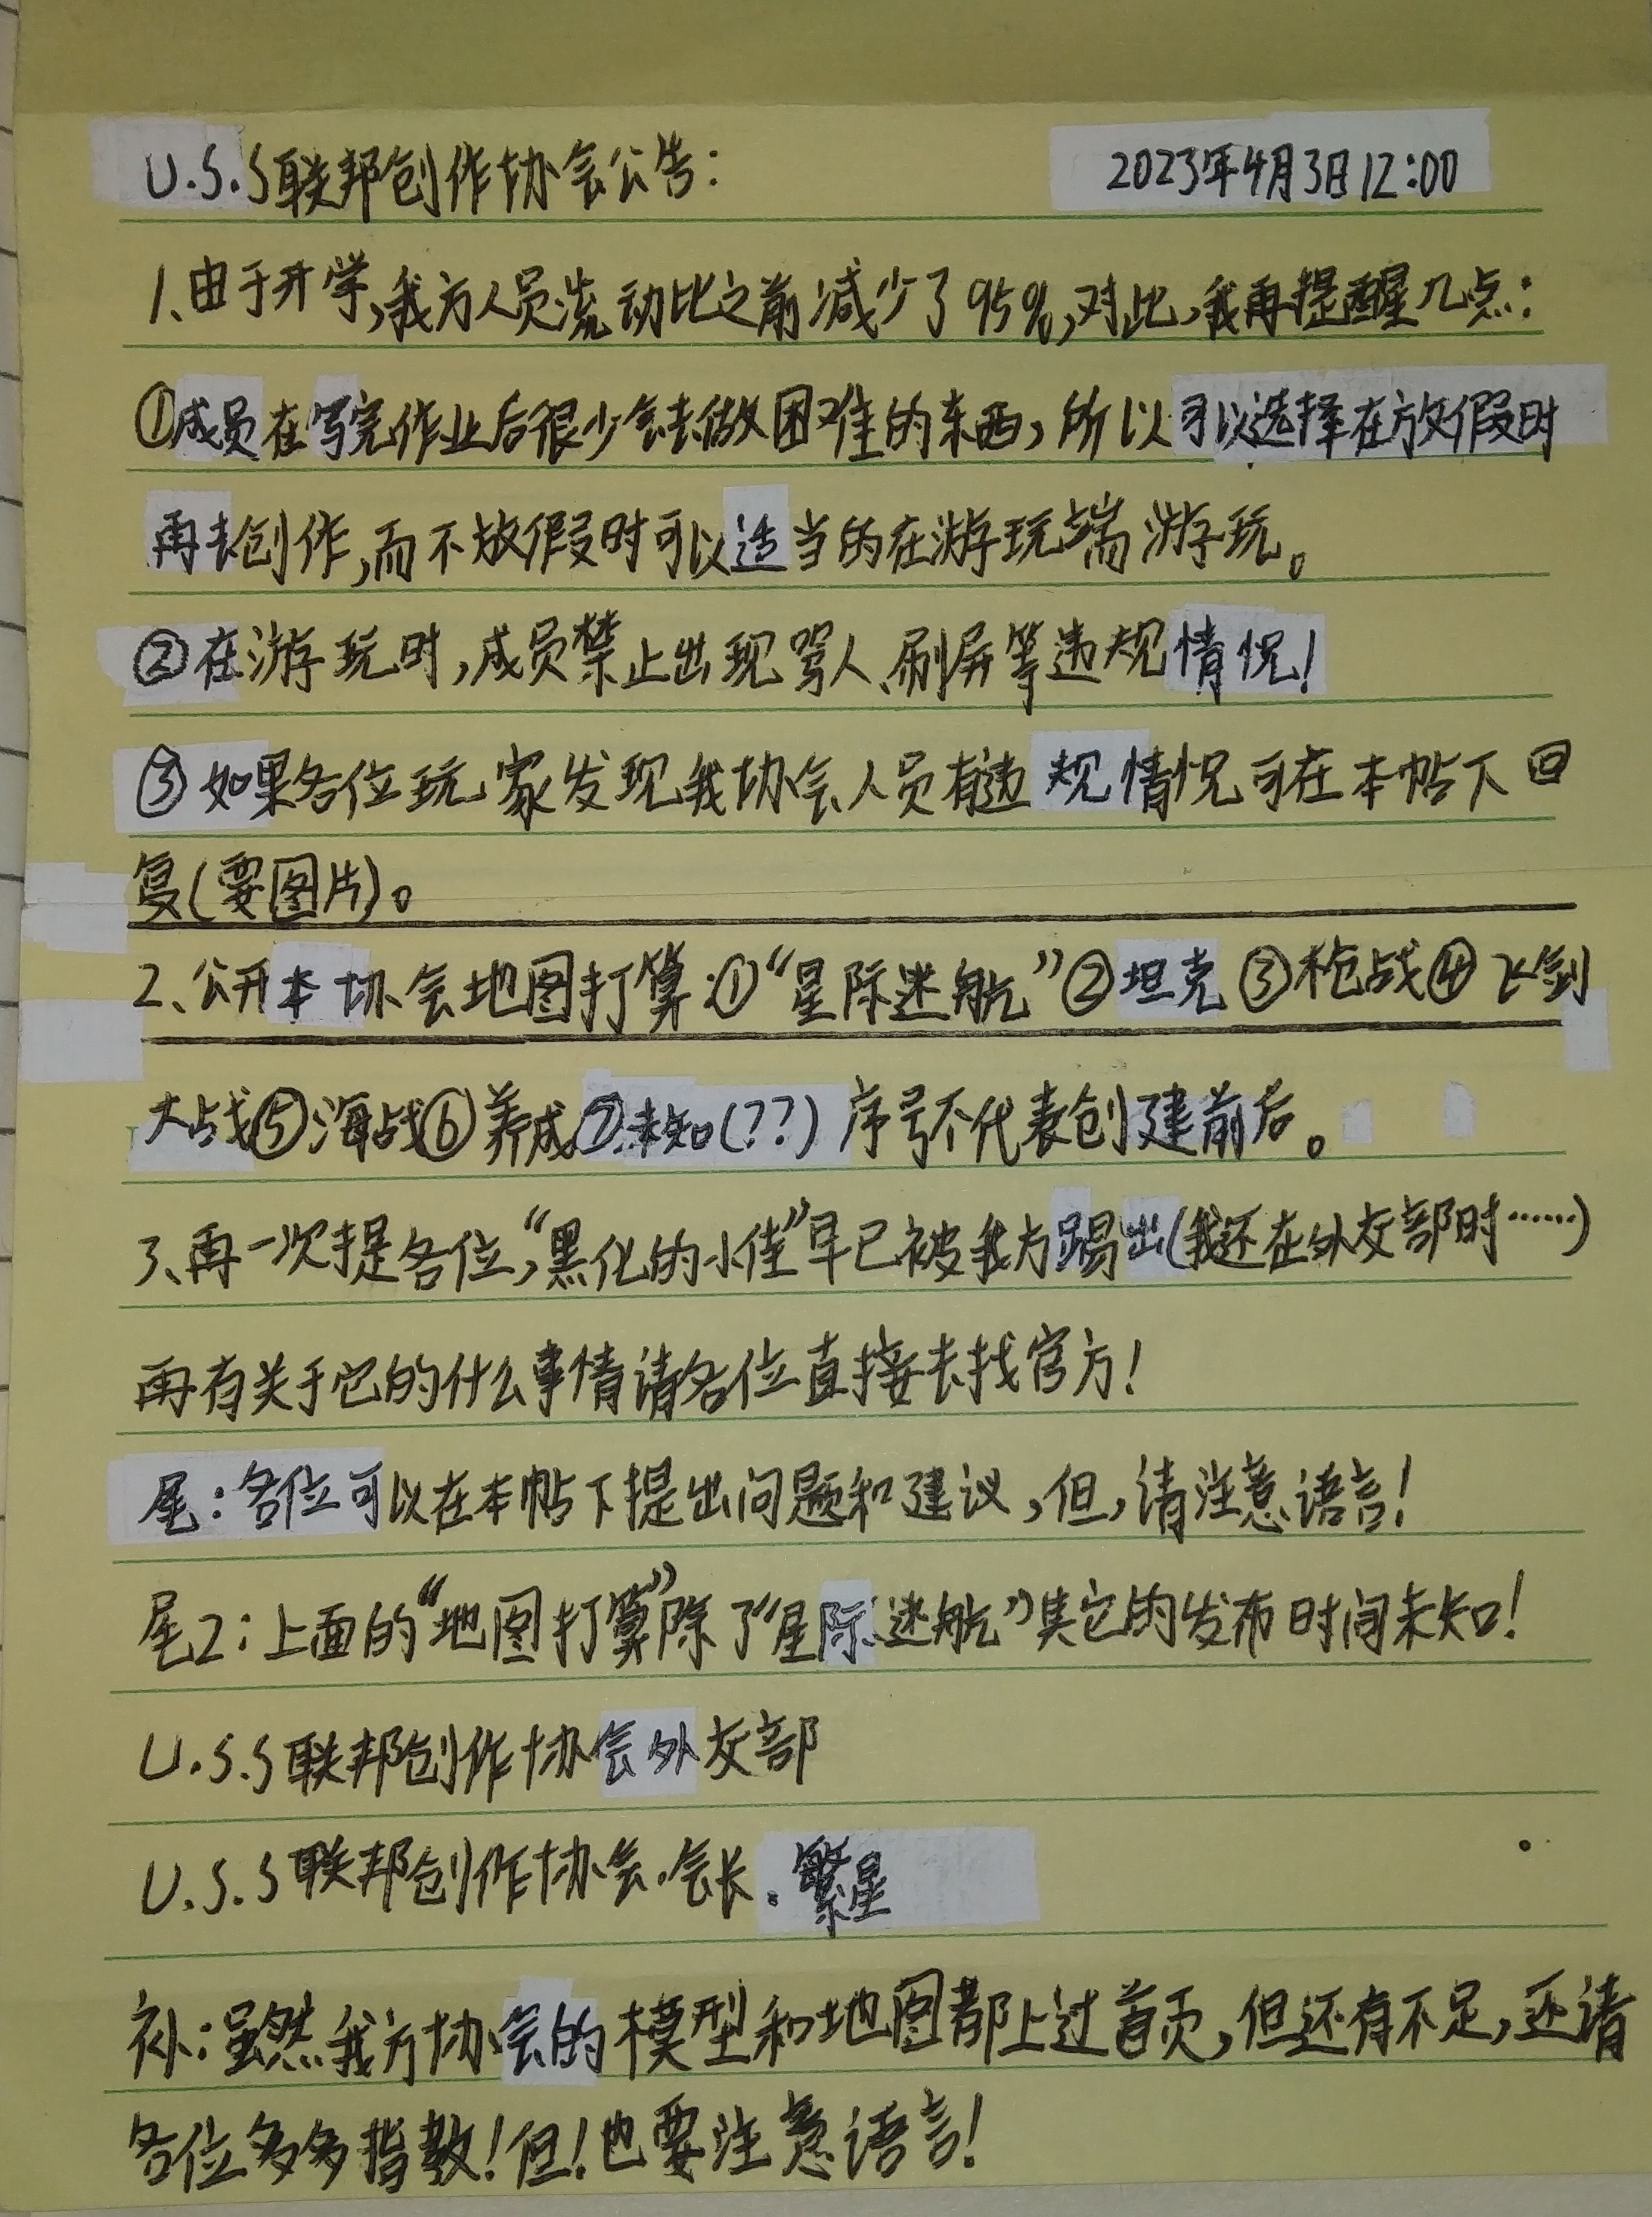 U.S.S联邦创作协会公告: 2023年4月3日12:00
1、由于开学,我方人员流动比之前减少了95%,对此,我再提醒几点:
①成员在写完作业后很少会去做困难的东西,所以可以选择在放假时
再去创作,而不放假时可以适当的在游玩端游玩。
②在游玩时,成员禁止出现骂人、刷屏等违规情况!
③如果各位玩家发现我协会人员有违规情况可在本帖下回
复(要图片)。
2、公开本协会地图打算:①“星际迷航”②坦克③枪战④飞剑
大战⑤海战⑥养成⑦未知(??)序号不代表创建前后。
3、再一次提各位,“黑化的小佳”早已被我方踢出(我还在外交部时……)
再有关于它的什么事情请各位直接去找官方!
尾:各位可以在本帖下提出问题和建议,但,请注意语言!
尾2:上面的“地图打算”除了“星际迷航”其它的发布时间未知!
U.S.S联邦创作协会外交部
U.S.S联邦创作协会.会长.繁星
补:虽然我方协会的模型和地图都上过首页,但还有不足,还请
各位多多指教!但!也要注意语言!